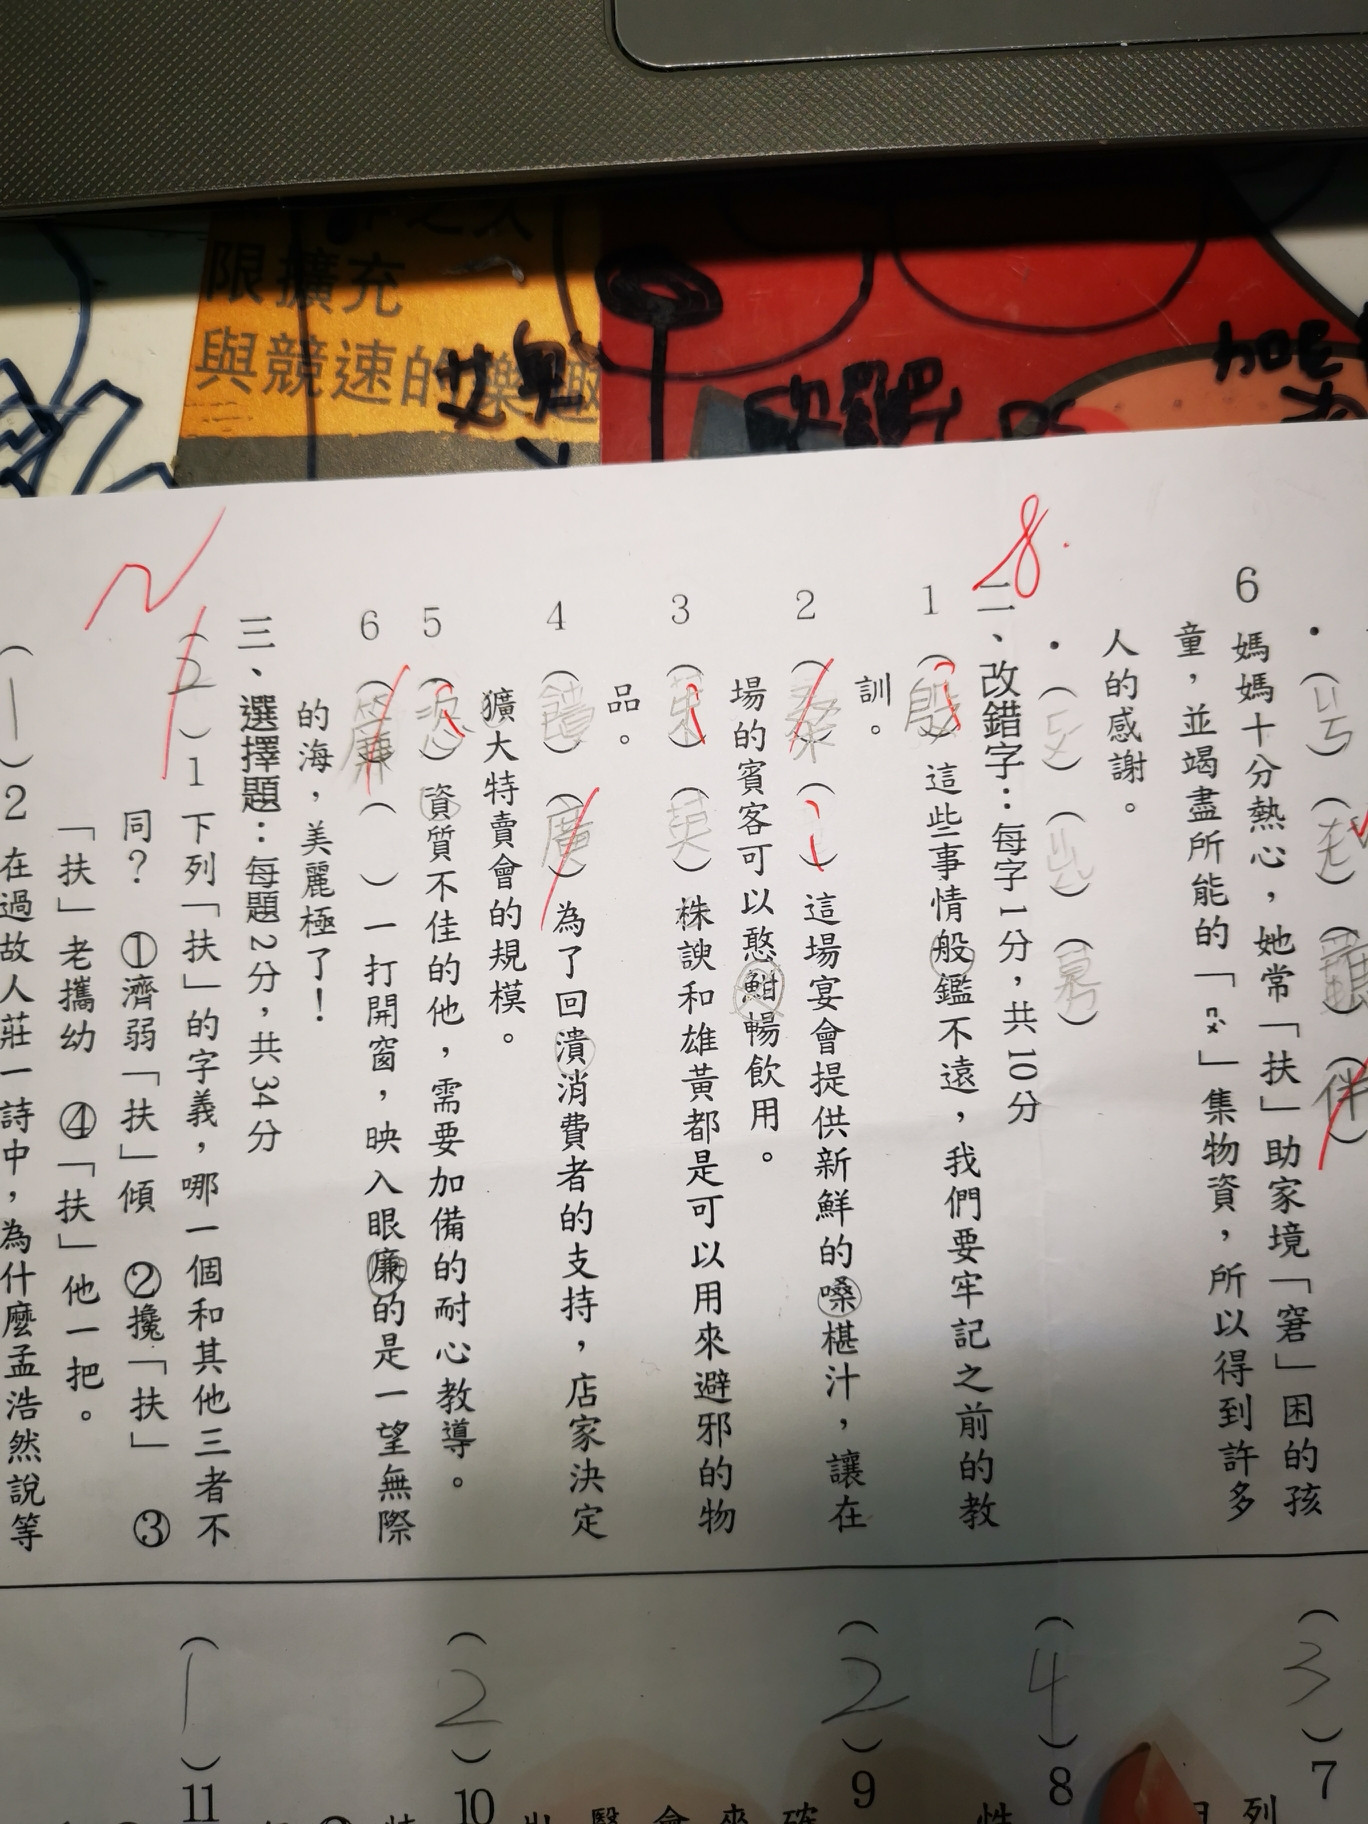 限擴充
與競速的樂趣
8.
6 媽媽十分熱心,她常「扶」助家境「窘」困的孩
童,並竭盡所能的「ㄘㄡˋ」集物資,所以得到許多
人的感謝。
二、改錯字:每字1分,共10分
1 (殷)這些事情般鑑不遠,我們要牢記之前的教
訓。
2 (桑)( )這場宴會提供新鮮的嗓椹汁,讓在
場的賓客可以憨魽暢飲用。
3 (茱)(萸)株諛和雄黃都是可以用來避邪的物
品。
4 (饋)(廣)為了回潰消費者的支持,店家決定
獷大特賣會的規模。
5 (恣)資質不佳的他,需要加備的耐心教導。
6 (簾)( )一打開窗,映入眼廉的是一望無際
的海,美麗極了!
三、選擇題:每題2分,共34分
(2)1 下列「扶」的字義,哪一個和其他三者不
同? ①濟弱「扶」傾 ②攙「扶」 ③
「扶」老攜幼 ④「扶」他一把。
(1)2 在過故人莊一詩中,為什麼孟浩然說等
(3)7
(4)8
(2)9
(2)10
(1)11